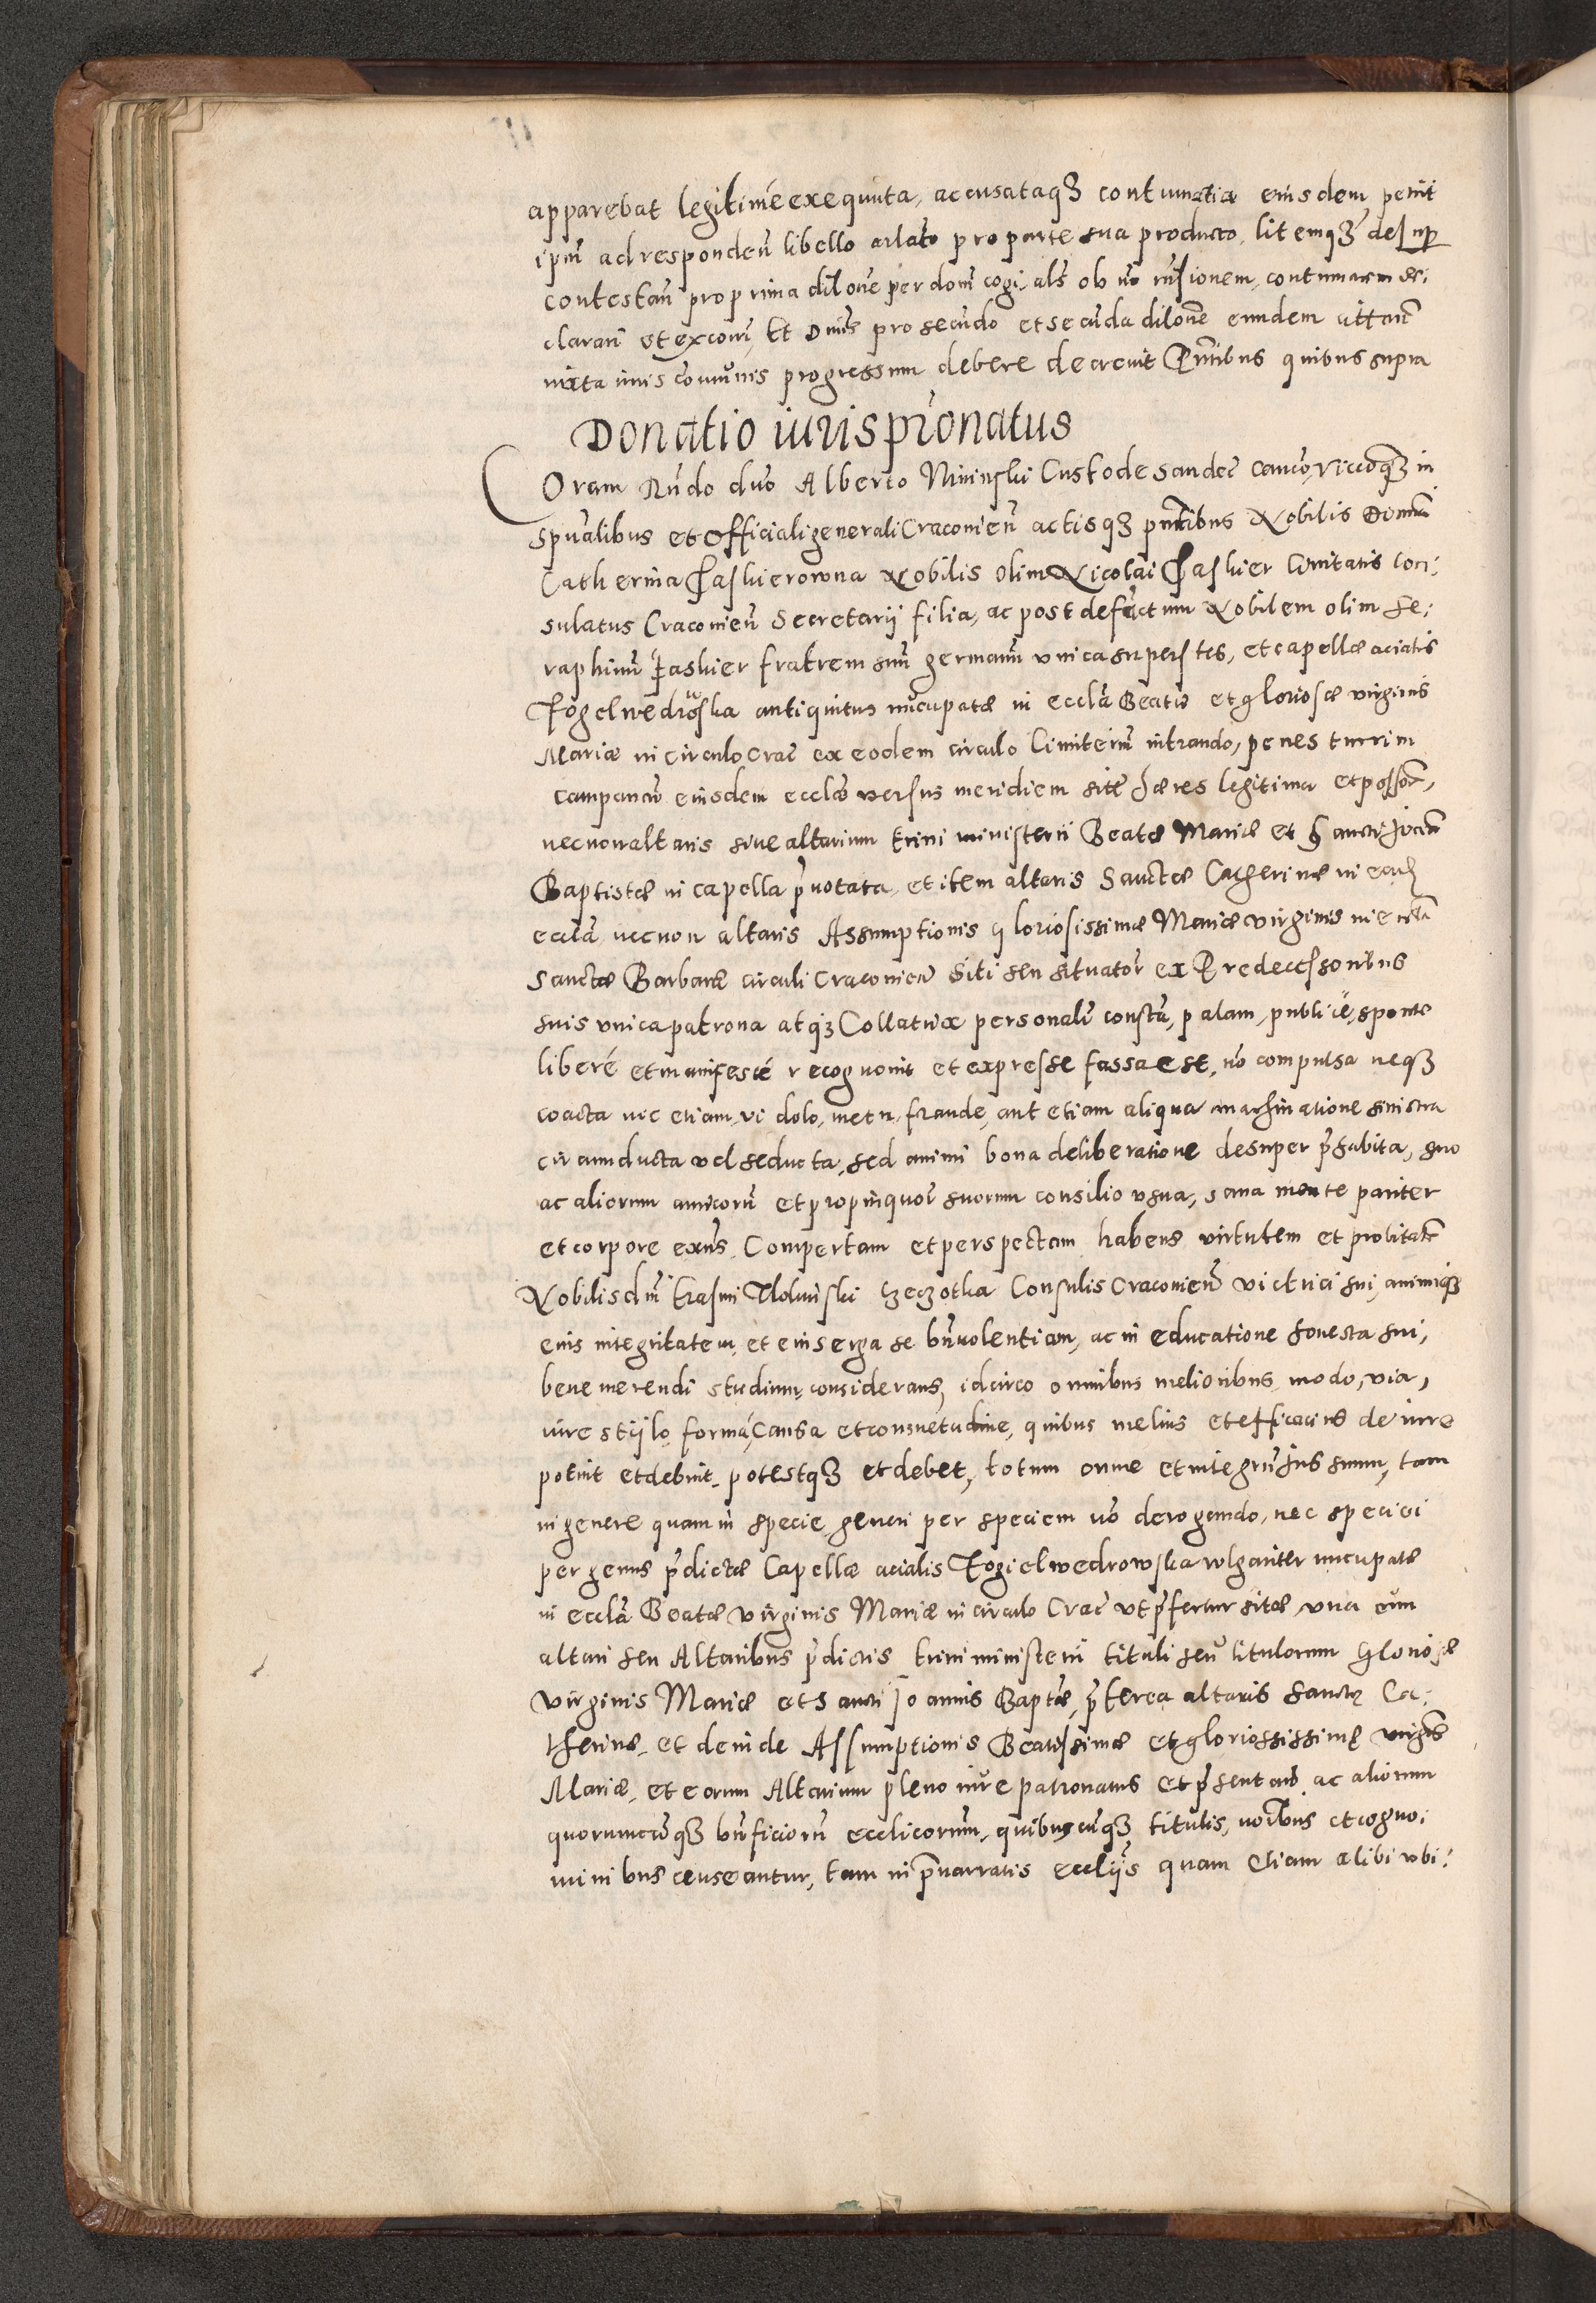 apparebat legitime exequuta, accusataqȝ contumatia eiusdem petiit
ipm̄ ad responden̄ libello arlato pro parte sua producto, litemqȝ desup
contestan̄ pro prima dilōne per dom̄ cogi, als ob nō rn̄sionem, contumacem de:
claran̄ et excōri, Et Dn̄us pro secūdo et secūda dilōne eundem cittan̄
iuxta iuris comūnis progressum debere decrevit Pn̄tibus quibus supra
Donatio iuris prōnatus
Coram Rn̄do dn̄o Alberto Nininski Custode sandec̄ canco, viccōqȝ in
spūalibus et Officiali generali Craconien̄ actisqȝ pn̄tibus Nobilis Domina
Catherina Paskierowna Nobilis olim Nicolai Paskier Civitatis con:
sulatus Craconien̄ Secretarij filia, ac post defūctum Nobilem olim Se:
raphinū Paskier fratrem suū germanū unica superstes, et capellæ acialis
Fogelwedrowska antiquitus nūcupatæ in ecclā Beatæ et gloriosæ virginis
Mariæ in circulo Crac̄ ex eodem circulo Cimiteriū intrando, penes turrim
campanar̄ eiusdem ecclæ versus meridiem sitæ hæres legitima et possōr,
necnon altaris sive altarium trini ministerii Beatæ Mariæ et Sancti Joan̄
Baptistæ in capella p̄notata, et item altaris Sanctæ Catherinæ in ead
ecclā, necnon altaris Assumptionis gloriosissimæ Mariæ virginis in ecclā
Sanctæ Barbaræ circuli Craconien̄ siti seu situator̄ ex Predecessoribus
suis unica patrona atqȝ Collatrix personalr̄ constā, palam, publicè, sponte
liberé et manifesté recognovit et expresse fassa est, nō compulsa neqȝ
coacta nec etiam vi dolo, metu, fraude, aut etiam aliqua machinatione sinistra
circumducta vel seducta, sed animi bona deliberatione desuper p̄habita, suo
ac aliorum amicorū et propinquor̄ suorum consilio usua, sana mente pariter
et corpore exn̄s Compertam et perspectam habens virtutem et probitatē
Nobilis dn̄i Erasmi Tlokinski czeczotka Consulis Craconien̄ victrici sui, animiqȝ
eius integritatem, et eius erga se bn̄volentiam, ac in educatione honesta sui,
bene merendi studium, considerans, idcirco omnibus melioribus modo, via,
iure stijlo, formā, Causa et consuetudine, quibus melius et efficacius de iure
potuit et debuit, potestqȝ et debet, totum omne et integrū ius suum, tam
in genere quam in specie, generi per speciem nō derogando, nec speciei
per genus p̄dictæ Capellæ acialis Fogielwedrowska wlgariter nūcupatæ
in ecclā Beatæ virginis Mariæ in circulo Crac̄ ut p̄fertur sitæ, una cum
altari seu Altaribus p̄dictis trini ministerii tituli seu titulorum gloriosæ
virginis Mariæ et Sancti Joannis Baptæ, p̄terea altaris Sanctæ Ca:
therinæ, et deinde Assumptionis Beatissimæ et gloriossissimę virgīs
Mariæ, et eorum Altarium pleno iure patronatus et p̄sentandi, ac aliorum
quorumcūqȝ bn̄ficiorū ecclicorum, quibuscūqȝ titulis, noībus et cogno:
minibus censeantur, tam in p̄narratis eccliis quam etiam alibi ubi: